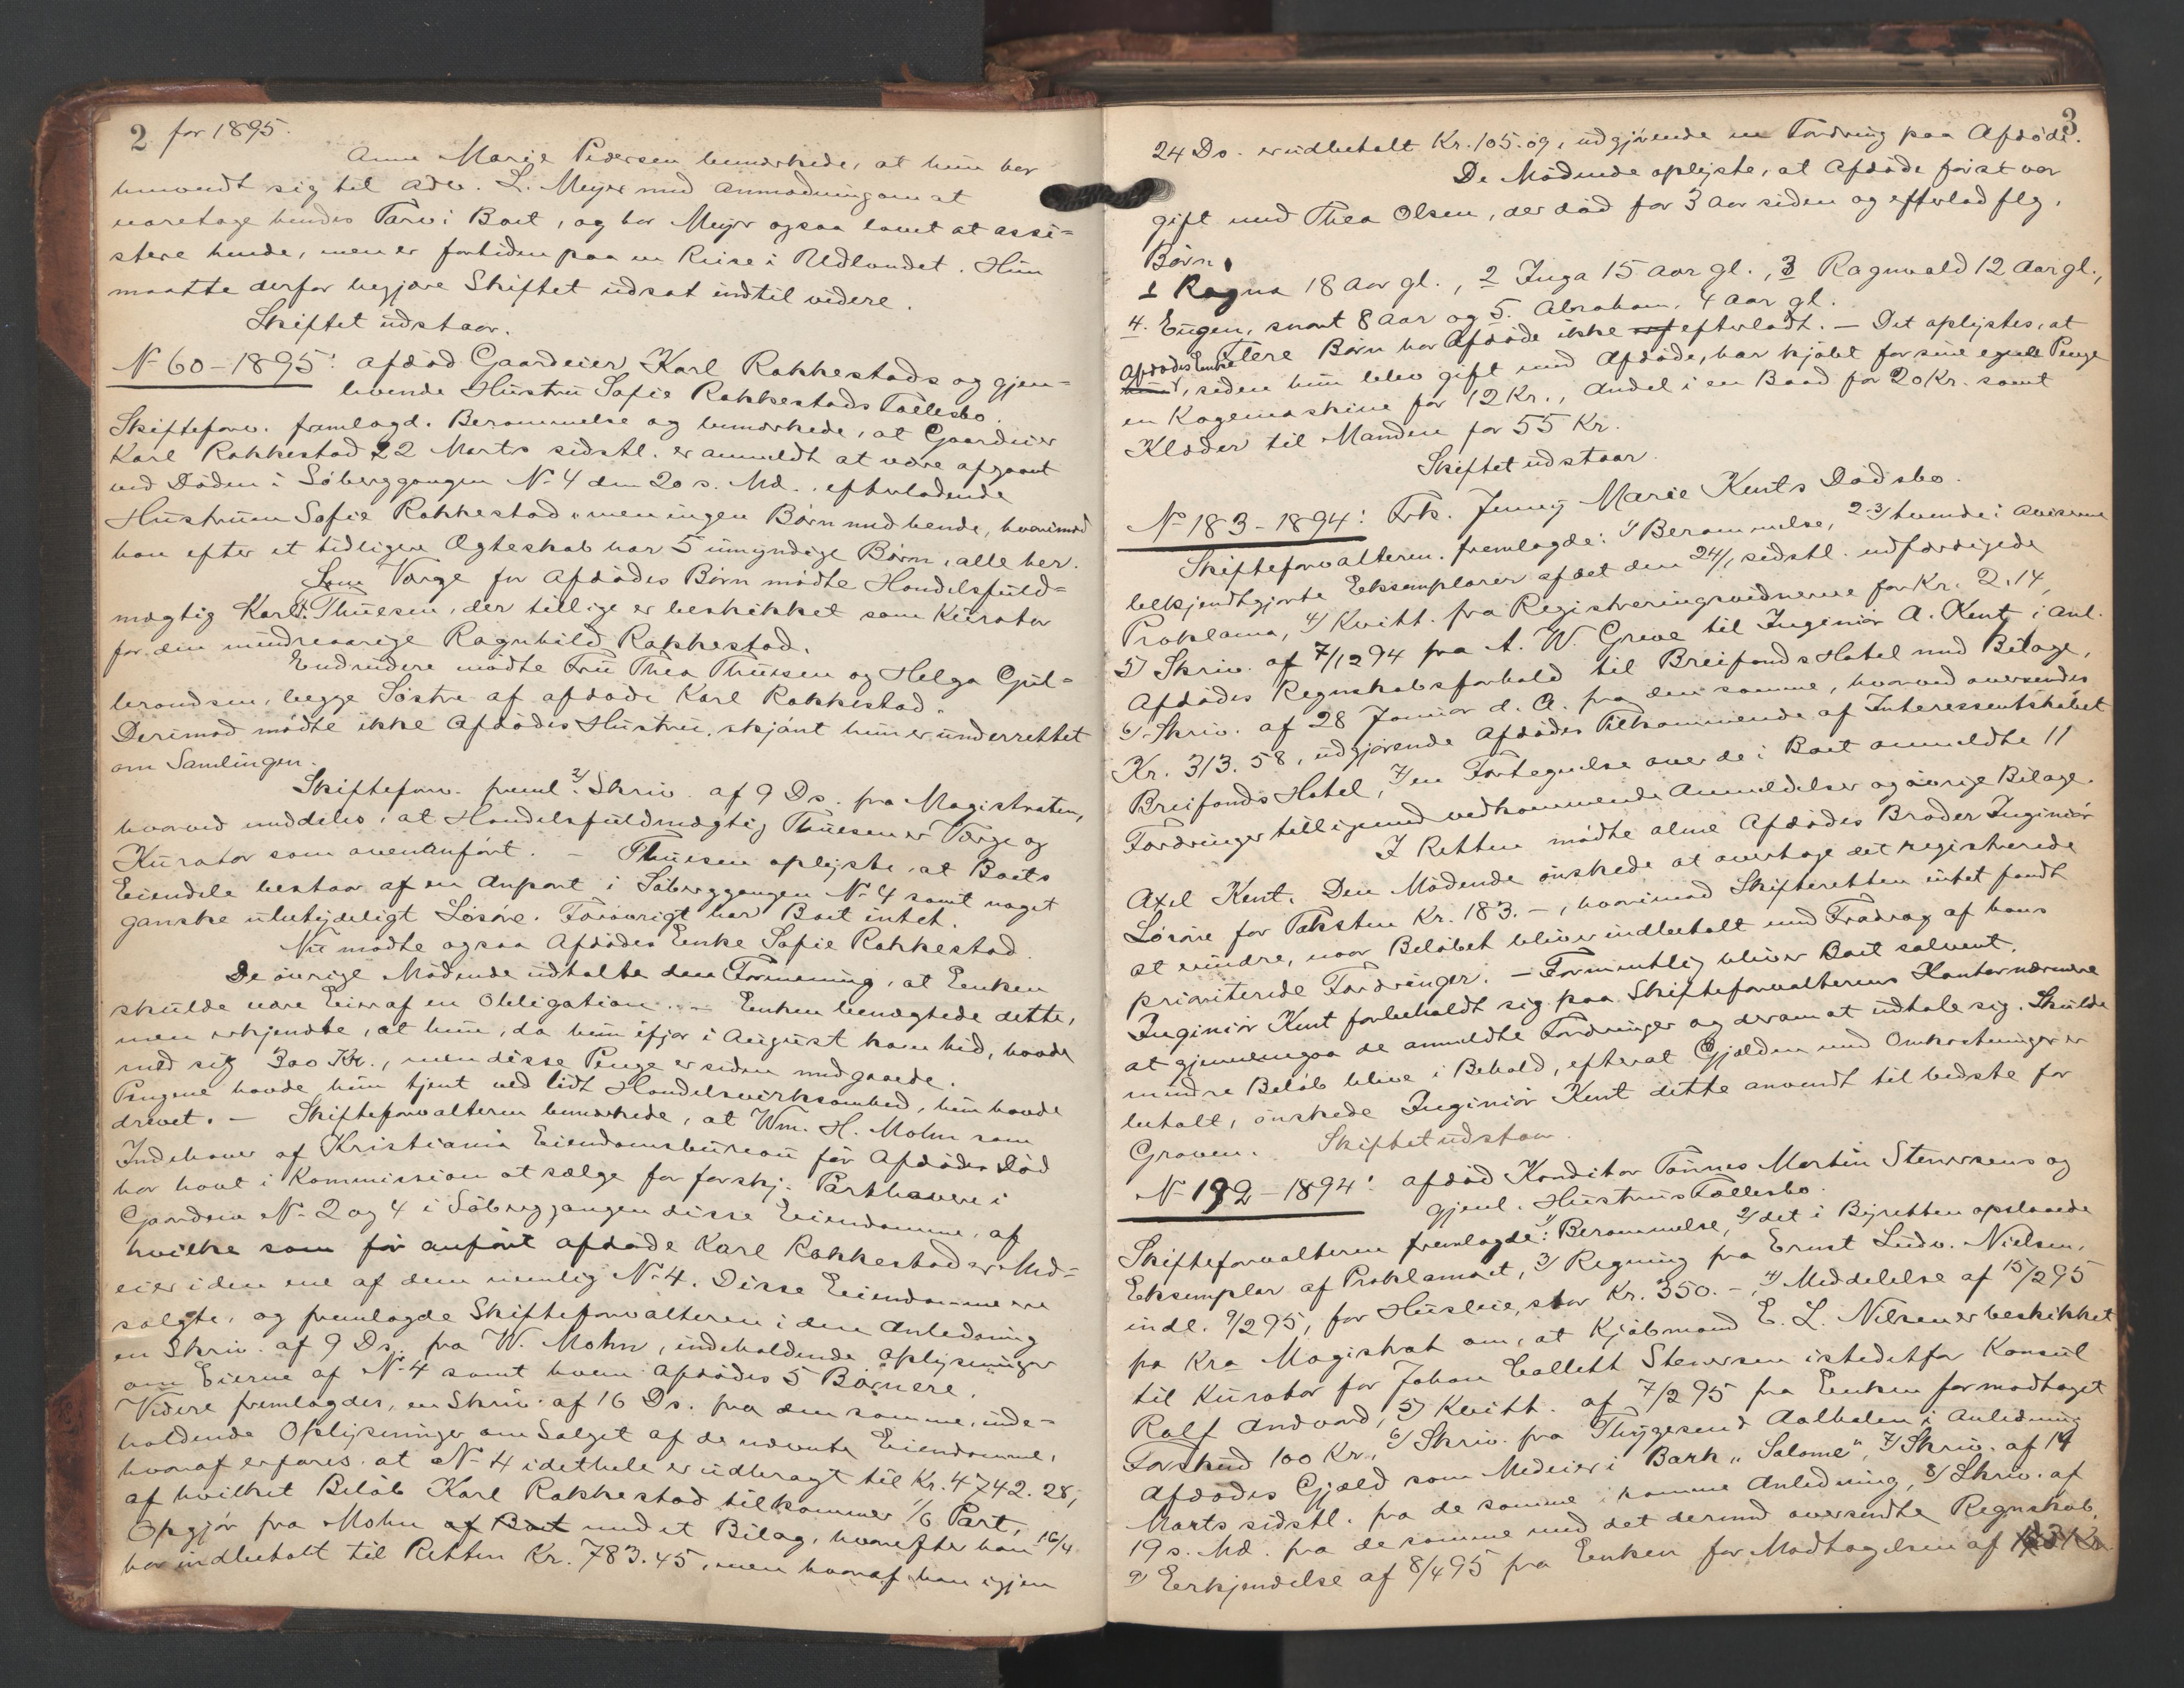 2 for 1895.
Anne Marie Pedersen bemærkede, at hun har
henvendt sig til Adv. L. Meyer med Anmodning om at
varetage hendes Tarv i Boet, og har Meyer ogsaa lovet at assi=
stere hende, men er fortiden paa en Reise i Udlandet. Hun
maatte derfor begjære Skiftet udsat indtil videre.
Skiftet udstaar.
No 60-1895: Afdød Gaardeier Karl Rakkestads og gjen=
levende Hustru Sofie Rakkestads Fællesbo.
Skifteforv. fremlagd. Berammelse og bemærkede, at Gaardeier
Karl Rakkestad 22 Marts sidstl. er anmeldt at være afgaaet
ved Døden i Søberggangen No 4 den 20 s. Md., efterladende
Hustruen Sofie Rakkestad, men ingen Børn med hende, hvorimod
han efter et tidligere Ægteskab har 5 umyndige Børn, alle her.
Som Værge for Afdødes Børn mødte Handelsfuld=
mægtig Karl Thuesen, der tillige er beskikket som Kurator
for den mindreaarige Ragnhild Rakkestad.
Endvidere mødte Fru Thea Thuesen og Helga Gul=
brandsen, begge Søstre af afdøde Karl Rakkestad.
Derimod mødte ikke Afdødes Hustru, skjønt hun er underrettet
om Samlingen.
Skifteforv. freml. 2/ Skriv. af 9 Ds. fra Magistraten,
hvorved meddeles, at Handelsfuldmægtig Thuesen er Værge og
Kurator som ovenanført. - Thuesen oplyste, at Boets
Eiendele bestaar af en Anpart i Søberggangen No 4 samt noget
ganske ubetydeligt Løsøre. Forøvrigt har Boet intet.
Nu mødte ogsaa Afdødes Enke Sofie Rakkestad.
De øvrige Mødende udtalte den Formening, at Enken
skulde være Eier af en Obligation. - Enken benægtede dette,
men erkjendte, at hun, da hun ifjor i August kom hid, havde
med sig 300 Kr., men disse Penge er siden medgaaede.
Pengene havde hun tjent ved lidt Handelsvirksomhed, hun havde
drevet. - Skifteforvalteren bemærkede, at Wm. H. Mohn som
Indehaver af Kristiania Eiendomsbureau før Afdødes Død
har havt i Kommission at sælge for forskj. Parthavere i
Gaardene No 2 og 4 i Søberggangen disse Eiendomme, af
hvilke som før anført afdøde Karl Rakkestad er Med=
eier i den ene af dem nemlig No 4. Disse Eiendomme ere
solgte, og fremlagde Skifteforvalteren i den Anledning
en Skriv. af 9 Ds. fra W. Mohn, indeholdende Oplysninger
om Eierne af No 4 samt hvem Afdødes 5 Børn ere.
Videre fremlagdes, en Skriv. af 16 Ds. fra den samme, inde=
holdende Oplysninger om Salget af de nævnte Eiendomme,
hvoraf erfares at No 4 idethele er udbragt til Kr. 4742.28,
af hvilket Beløb Karl Rakkestad tilkommer 1/6 Part,
Opgjør fra Mohn af Boet med et Bilag, hvorefter han 16/4
har indbetalt til Retten Kr. 783.45, men hvoraf han igjen
3
24 Ds. er udbetalt Kr. 105.09, udgjørende en Fordring paa Afdøde.
De Mødende oplyste, at Afdøde først var
gift med Thea Olsen, der død for 3 Aar siden og efterlod flg.
Børn.
1 Ragna 18 Aar gl., 2 Inga 15 Aar gl., 3 Ragnvald 12 Aar gl.,
4. Eugen, snart 8 Aar og 5. Abraham, 4 Aar gl.
Flere Børn har Afdøde ikke eft efterladt. - Det oplystes, at
Afdødes Enke
hun, siden hun blev gift med Afdøde, har kjøbt for sine egne Penge
en Kogemaskine for 12 Kr., Andel i en Baad for 20 Kr. samt
Klæder til Manden for 55 Kr.
Skiftet udstaar.
No 183-1894: Frk. Jenny Marie Kents Dødsbo.
Skifteforvalteren fremlagde: 1/ Berammelse, 2-3/ tvende i Aviserne
bekjendtgjorte Eksemplarer af det den 24/1 sidstl. udfærdigede
Proklama, 4/ Kvitt. fra Registreringsvidnerne for Kr. 2.14,
5/ Skriv. af 7/12 94 fra A. W. Greve til Ingeniør A. Kent i Anl.
Afdødes Regnskabsforhold til Breifonds Hotel med Bilage,
6/ Skriv. af 28 Januar d. A. fra den samme, hvorved oversendes
Kr. 313.58, udgjørende Afdødes Tilkommende af Interessentskabet
Breifonds Hotel, 7/ en Fortegnelse over de i Boet anmeldte 11
Fordringer tilligemed vedkommende Anmeldelser og øvrige Bilage.
I Retten mødte alene Afdødes Broder Ingeniør
Axel Kent. Den Mødende ønskede at overtage det registrerede
Løsøre for Taksten Kr. 183.-, hvorimod Skifteretten intet fandt
at erindre, naar Beløbet bliver indbetalt med Fradrag af hans
prioriterede Fordringer. - Formentlig bliver Boet solvent.
Ingeniør Kent forbeholdt sig paa Skifteforvalterens Kontor nærmere
at gjennemgaa de anmeldte Fordringer og derom at udtale sig. Skulde
mindre Beløb blive i Behold, efterat Gjælden med Omkostninger er
betalt, ønskede Ingeniør Kent dette anvendt til bedste for
Graven. Skiftet udstaar.
No 192-1894: Afdød Konditor Tønnes Martin Stenersens og
gjenl. Hustrus Fællesbo.
Skifteforvalteren fremlagde: 1/ Berammelse, 2/ det i Byretten opslaaede
Eksemplar af Proklamaet, 3/ Regning fra Ernst Ludv. Nielsen,
indl. 9/2 95, for Husleie, stor Kr. 350.-, 4/ Meddelelse af 15/2 95
fra Kra Magistrat om, at Kjøbmand E. L. Nilsen er beskikket
til Kurator for Johan Collett Stenersen istedetfor Konsul
Rolf Andvord, 5/ Kvitt. af 7/2 95 fra Enken for modtaget
Forskud 100 Kr., 6/ Skriv. fra Thygesen & Aalholm i Anledning
Afdødes Gjæld som Medeier i Bark „Salome", 7/ Skriv. af 14
Marts sidstl. fra de samme i samme Anledning, 8/ Skriv. af
19 s. Md. fra de samme med det dermed oversendte Regnskab,
9/ Eerkjendelse af 8/4 95 fra Enken for Modtagelsen af